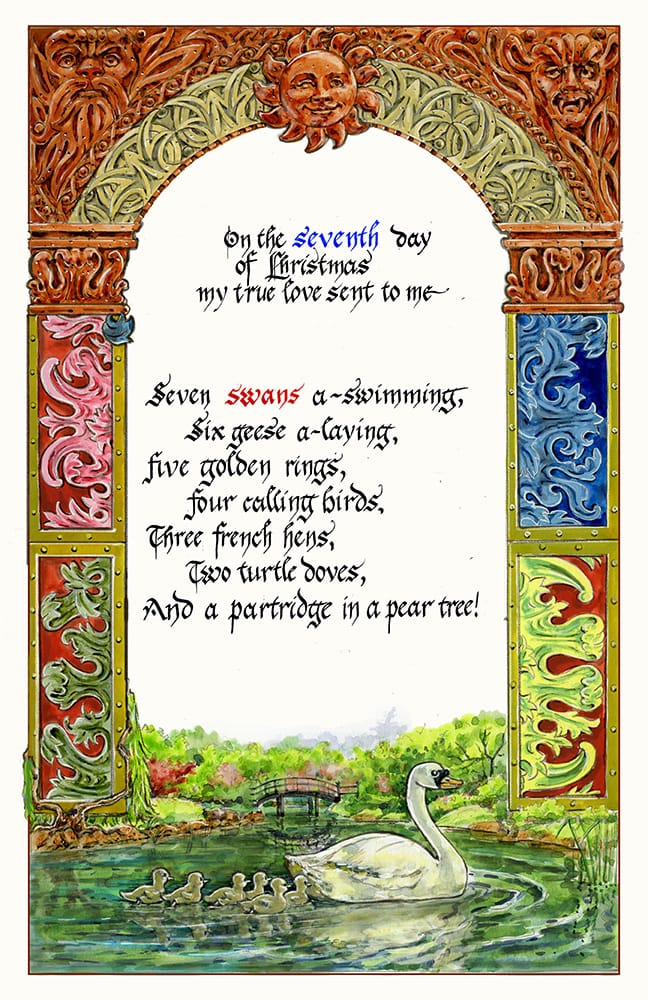 On the seventh day
of Christmas
my true love sent to me
Seven swans a-swimming,
Six geese a-laying,
five golden rings,
four calling birds,
Three french hens,
Two turtle doves,
And a partridge in a pear tree!